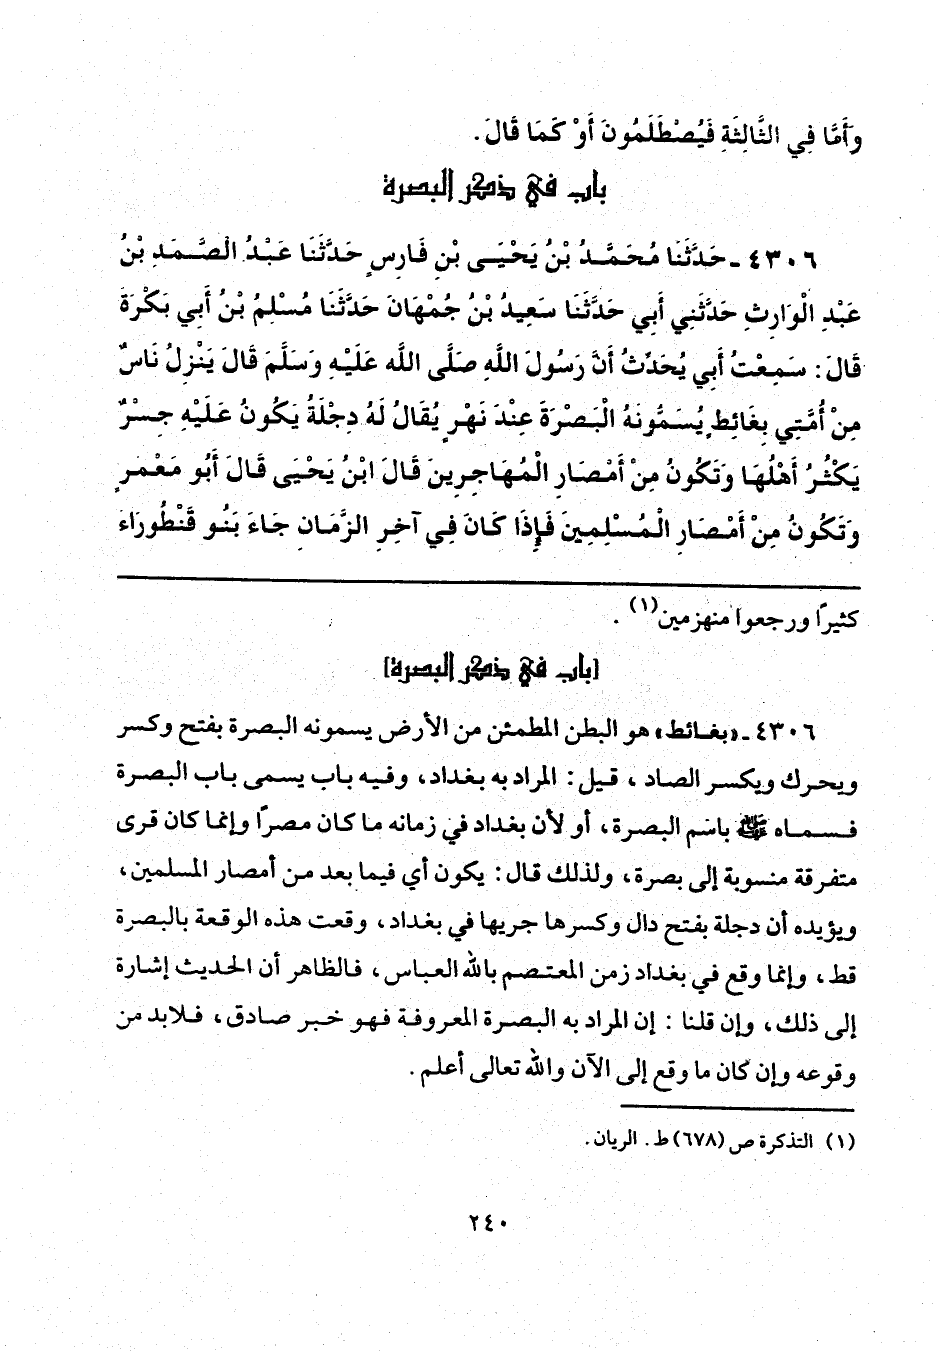 وَأَمَّا فِي الثَّالِثَةِ فَيُصْطَلَمُونَ أَوْ كَمَا قَالَ.
باب في ذكر البصرة
٤٣٠٦ ـ حَدَّثَنَا مُحَمَّدُ بْنُ يَحْيَى بْنِ فَارِسٍ حَدَّثَنَا عَبْدُ الصَّمَدِ بْنُ
عَبْدِ الْوَارِثِ حَدَّثَنِي أَبِي حَدَّثَنَا سَعِيدُ بْنُ جُمْهَانَ حَدَّثَنَا مُسْلِمُ بْنُ أَبِي بَكْرَةَ
قَالَ: سَمِعْتُ أَبِي يُحَدِّثُ أَنَّ رَسُولَ اللَّهِ صَلَّى اللَّه عَلَيْهِ وَسَلَّمَ قَالَ يَنْزِلُ نَاسٌ
مِنْ أُمَّتِي بِغَائِطٍ يُسَمُّونَهُ الْبَصْرَةَ عِنْدَ نَهْرٍ يُقَالُ لَهُ دِجْلَةُ يَكُونُ عَلَيْهِ جِسْرٌ
يَكْثُرُ أَهْلُهَا وَتَكُونُ مِنْ أَمْصَارِ الْمُهَاجِرِينَ قَالَ ابْنُ يَحْيَى قَالَ أَبُو مَعْمَرٍ
وَتَكُونُ مِنْ أَمْصَارِ الْمُسْلِمِينَ فَإِذَا كَانَ فِي آخِرِ الزَّمَانِ جَاءَ بَنُو قَنْطُورَاءَ
كثيرًا ورجعوا منهزمين(١).
[باب في ذكر البصرة]
٤٣٠٦ ـ «بغائط» هو البطن المطمئن من الأرض يسمونه البصرة بفتح وكسر
ويحرك ويكسر الصاد، قيل: المراد به بغداد، وفيه باب يسمى باب البصرة
فسماه ﷺ باسم البصرة، أو لأن بغداد في زمانه ما كان مصرًا وإنما كان قرى
متفرقة منسوبة إلى بصرة، ولذلك قال: يكون أي فيما بعد من أمصار المسلمين،
ويؤيده أن دجلة بفتح دال وكسرها جريها في بغداد، وقعت هذه الوقعة بالبصرة
قط، وإنما وقع في بغداد زمن المعتصم بالله العباس، فالظاهر أن الحديث إشارة
إلى ذلك، وإن قلنا: إن المراد به البصرة المعروفة فهو خبر صادق، فلابد من
وقوعه وإن كان ما وقع إلى الآن والله تعالى أعلم.
(١) التذكرة ص (٦٧٨) ط. الريان.
٢٤٠